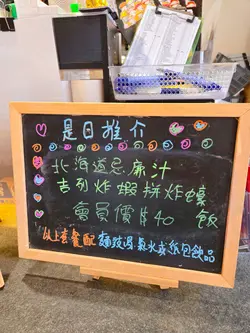 是日推介
北海道忌廉汁
吉列炸蝦拼炸蠔飯
會員價$40
以上套餐配 麵豉湯, 氣水或紙包飲品